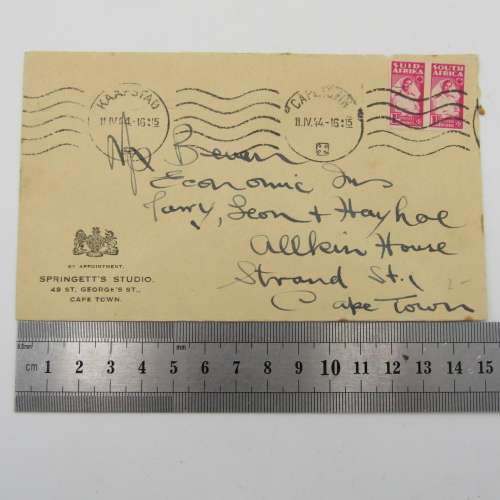 SUID AFRIKA
SOUTH AFRICA
KAAPSTAD
11.IV.44.-16:15
CAPE TOWN
11.IV.44.-16:15
Bevan
Economic Ins
Parry, Leon + Hayhoe
Allkin House
Strand St.,
Cape Town
BY APPOINTMENT.
SPRINGETT'S STUDIO.
49 ST. GEORGE'S ST.,
CAPE TOWN.
0.5mm mm
cm 1 2 3 4 5 6 7 8 9 10 11 12 13 14 15